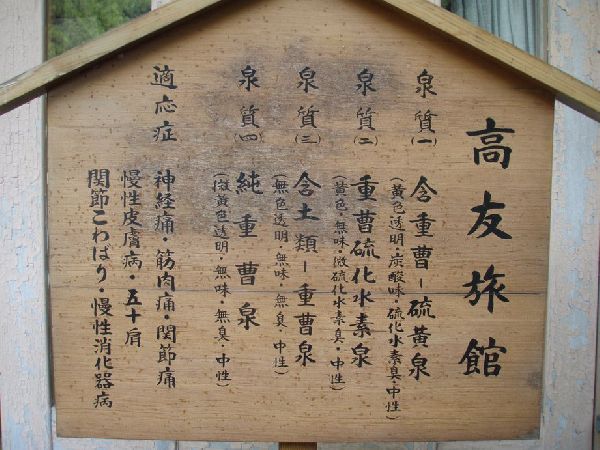 高友旅館
泉質(一) 含重曹-硫黄泉
(黄色透明・炭酸味・硫化水素臭・中性)
泉質(二) 重曹硫化水素泉
(黄色・無味・微硫化水素臭・中性)
泉質(三) 含土類-重曹泉
(無色透明・無味・無臭・中性)
泉質(四) 純重曹泉
(微黄色透明・無味・無臭・中性)
適応症 神経痛・筋肉痛・関節痛
慢性皮膚病・五十肩
関節こわばり・慢性消化器病